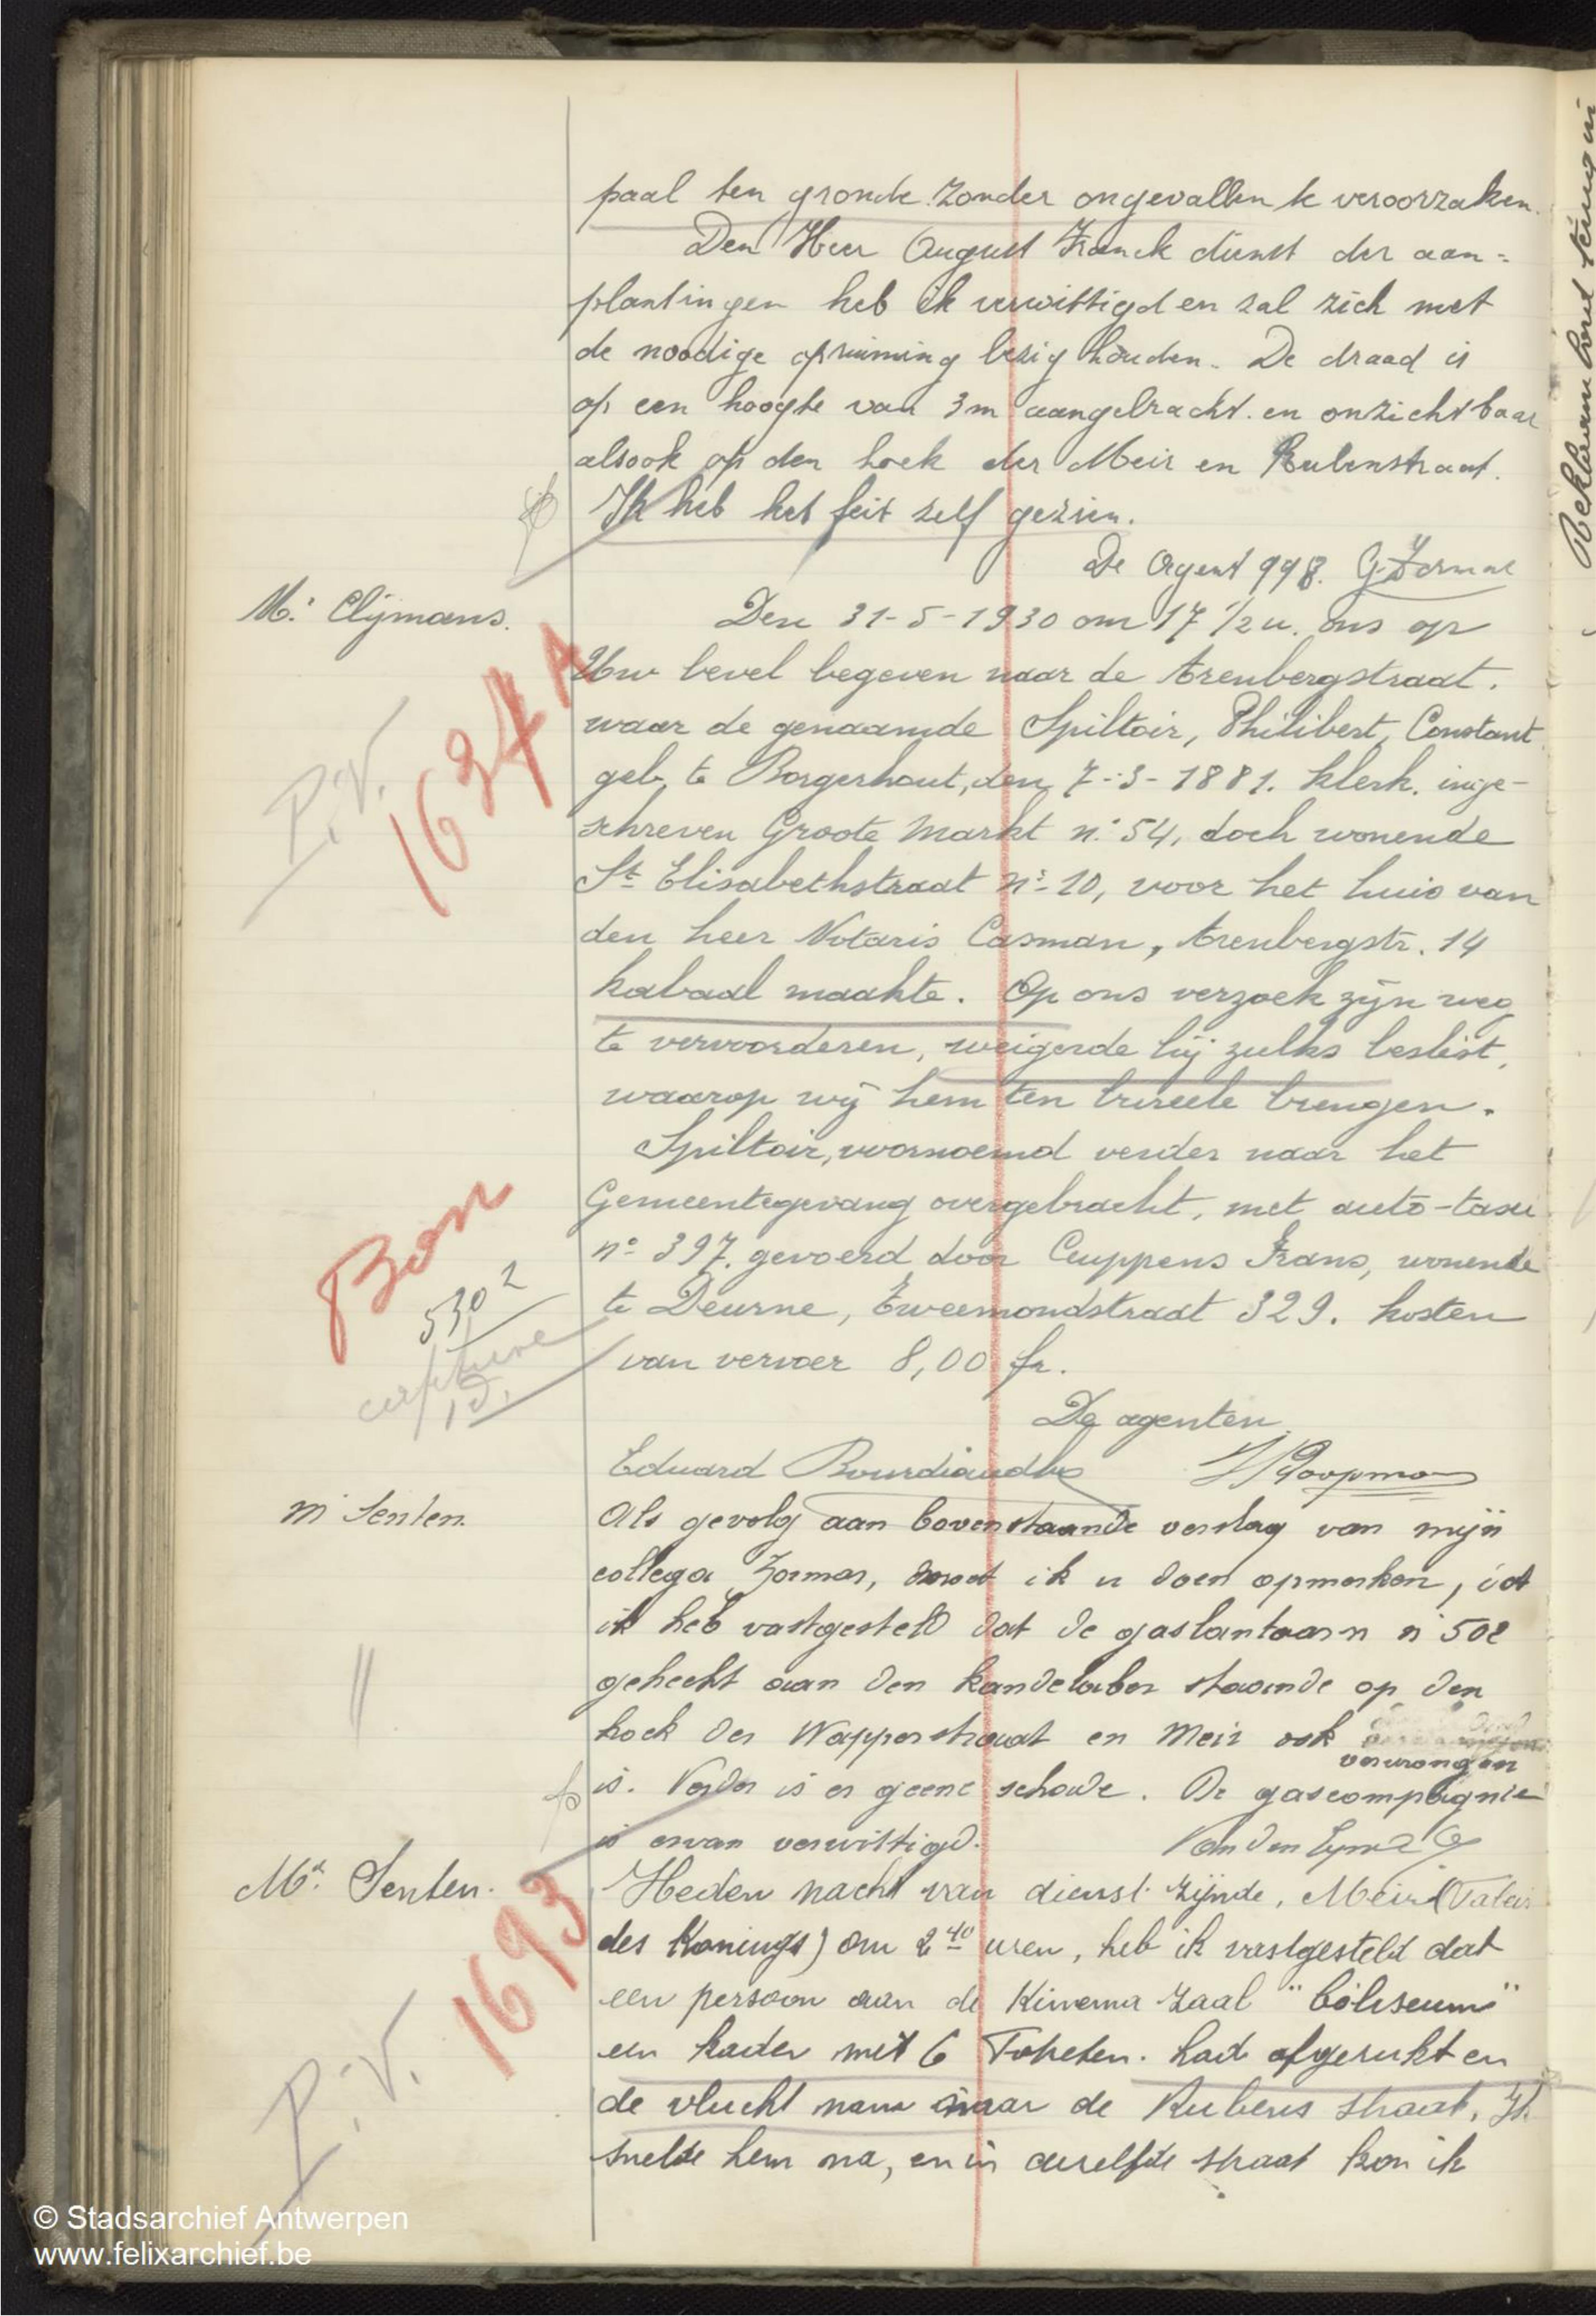 paal ten gronde zonder ongevallen te veroorzaken.
Den Heer August Franck dienst der aan=
plantingen heb ik verwittigd en zal zich met
de noodige opruiming bezig houden. De draad is
op een hoogte van 3m aangebracht en onzichtbaar
alsook op den hoek der Meir en Rubenstraat.
Ik heb het feit zelf gezien.
De Agent 998.
Mr Clijmans.
Den 31-5-1930 om 17 1/2 u. ons op
Uw bevel begeven naar de Arenbergstraat.
waar de genaamde Spiltoir, Philibert, Constant
geb. te Borgerhout, den 7-3-1881. klerk. inge-
schreven Groote Markt n° 54, doch wonende
St Elisabethstraat n° 10, voor het huis van
den heer Notaris Casman, Arenbergstr. 14
kabaal maakte. Op ons verzoek zijn weg
te vervoorderen, weigerde hij zulks beslist,
waarop wij hem ten bureele brengen.
P.V.
1634 A
Spiltoir, voornoemd verder naar het
Gemeentegevang overgebracht, met auto-taxi
n° 397. gevoerd door Cuppens Frans, wonende
te Deurne, Tweemondstraat 329. kosten
van vervoer 8,00 fr.
Bon
5302
De agenten
Eduard
Mr Senten.
Als gevolg aan bovenstaande verslag van mijn
collega Zormar, moet ik u doen opmerken, dat
ik heb vastgesteld dat de gaslantaarn n 502
gehecht aan den kandelaber staande op den
hoek der Wapperstraat en Meir ook
verwrongen
is. Verder is er geene schade. De gascompagnie
is ervan verwittigd.
Mr Senten.
Heden nacht van dienst zijnde, Meir (Paleis
des Konings) om 2 40 uren, heb ik vastgesteld dat
een persoon aan de Kinema zaal "Coliseum"
een kader met 6 Fotreten. had afgerukt en
de vlucht nam naar de Rubens straat. Ik
snelde hem na, en in dezelfde straat kon ik
1693
P.V.
© Stadsarchief Antwerpen
www.felixarchief.be